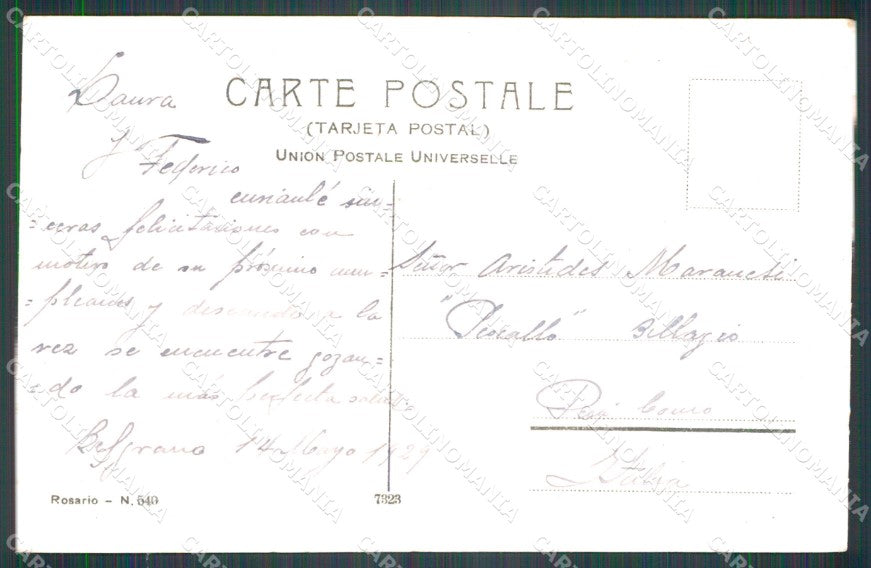 CARTE POSTALE
(TARJETA POSTAL)
UNION POSTALE UNIVERSELLE
Laura
y Federico
sin=
=ceras felicitaciones con
motivo de su próximo cum=
=pleaños y deseando a la
vez se encuentre gozan=
=do la más perfecta salud.
Belgrano 14 Mayo 1929
Señor Aristides
Bellagio
Como
Italia
Rosario - N. 540
7323
CARTOLINOMANIA